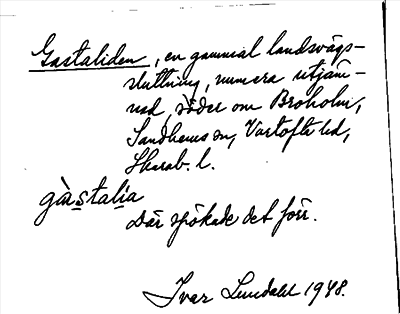 Gastaliden, en gammal landsvägs-
sluttning, numera utjäm-
nad, söder om Broholm,
Sandhems sn, Vartofta hd,
Skarab. l.
gàstalia
Där spökade det förr.
Ivar Lundahl 1948.